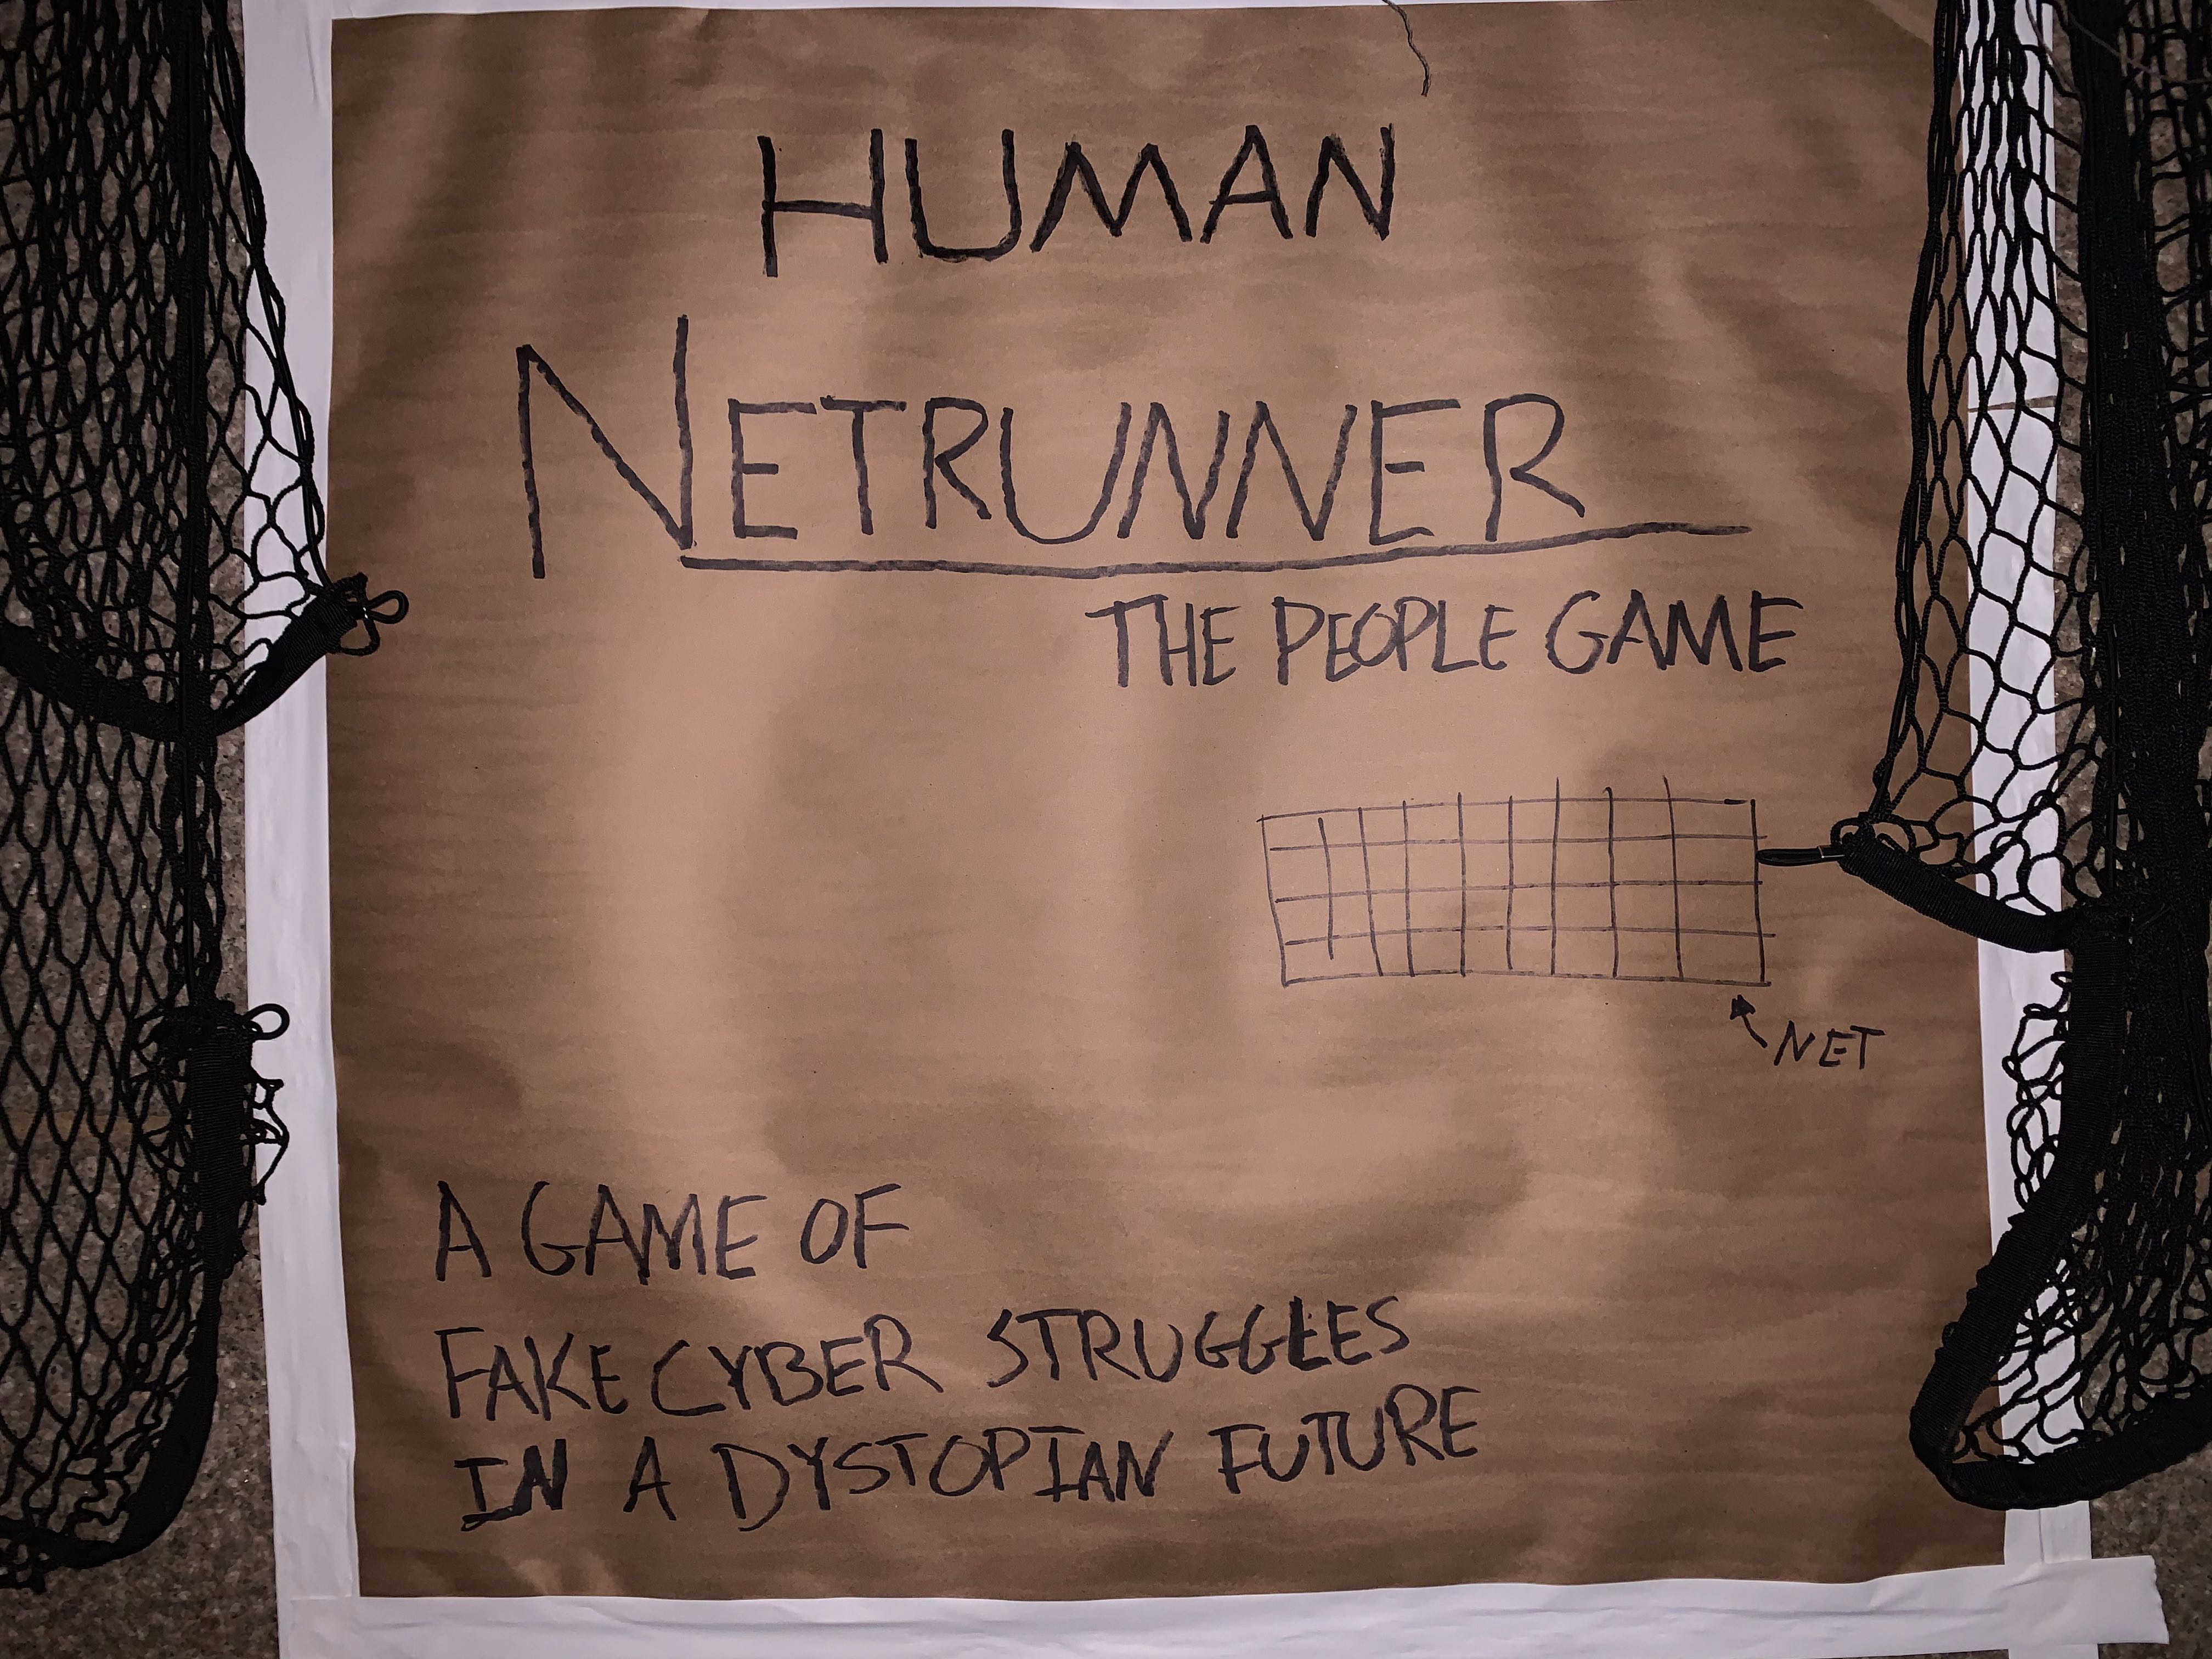 HUMAN
NETRUNNER
THE PEOPLE GAME
NET
A GAME OF
FAKE CYBER STRUGGLES
IN A DYSTOPIAN FUTURE